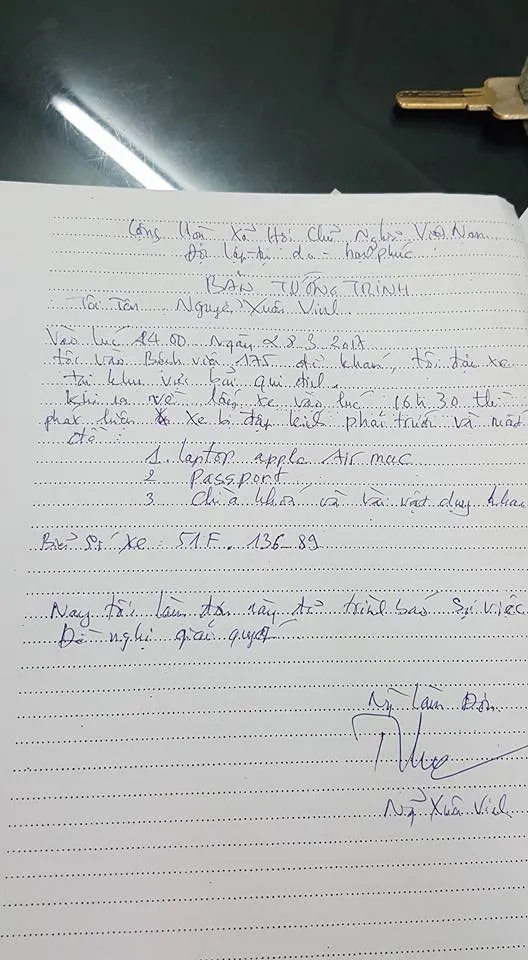 Cộng Hoà Xã Hội Chủ Nghĩa Việt Nam
Độ lập - tự do - hạnh phúc
BẢN TƯỜNG TRÌNH
Tôi Tên Nguyễn Xuân Vinh
Vào lúc 14.00 ngày 28.3.2017
tôi vào Bệnh viện 175 để khám, tôi đậu xe
tại khu vực bãi qui định.
Khi ra về lấy xe vào lúc 16h30 thì
phát hiện xe bị đập kính phải trước và mất
đồ:
1. laptop apple Air mac
2 Passport
3 Chìa khoá và vài vật dụng khác
Biển số xe: 51F. 136-89
Nay tôi làm đơn này để trình báo sự việc
Đề nghị giải quyết
Ng` làm Đơn
Ng~ Xuân Vinh